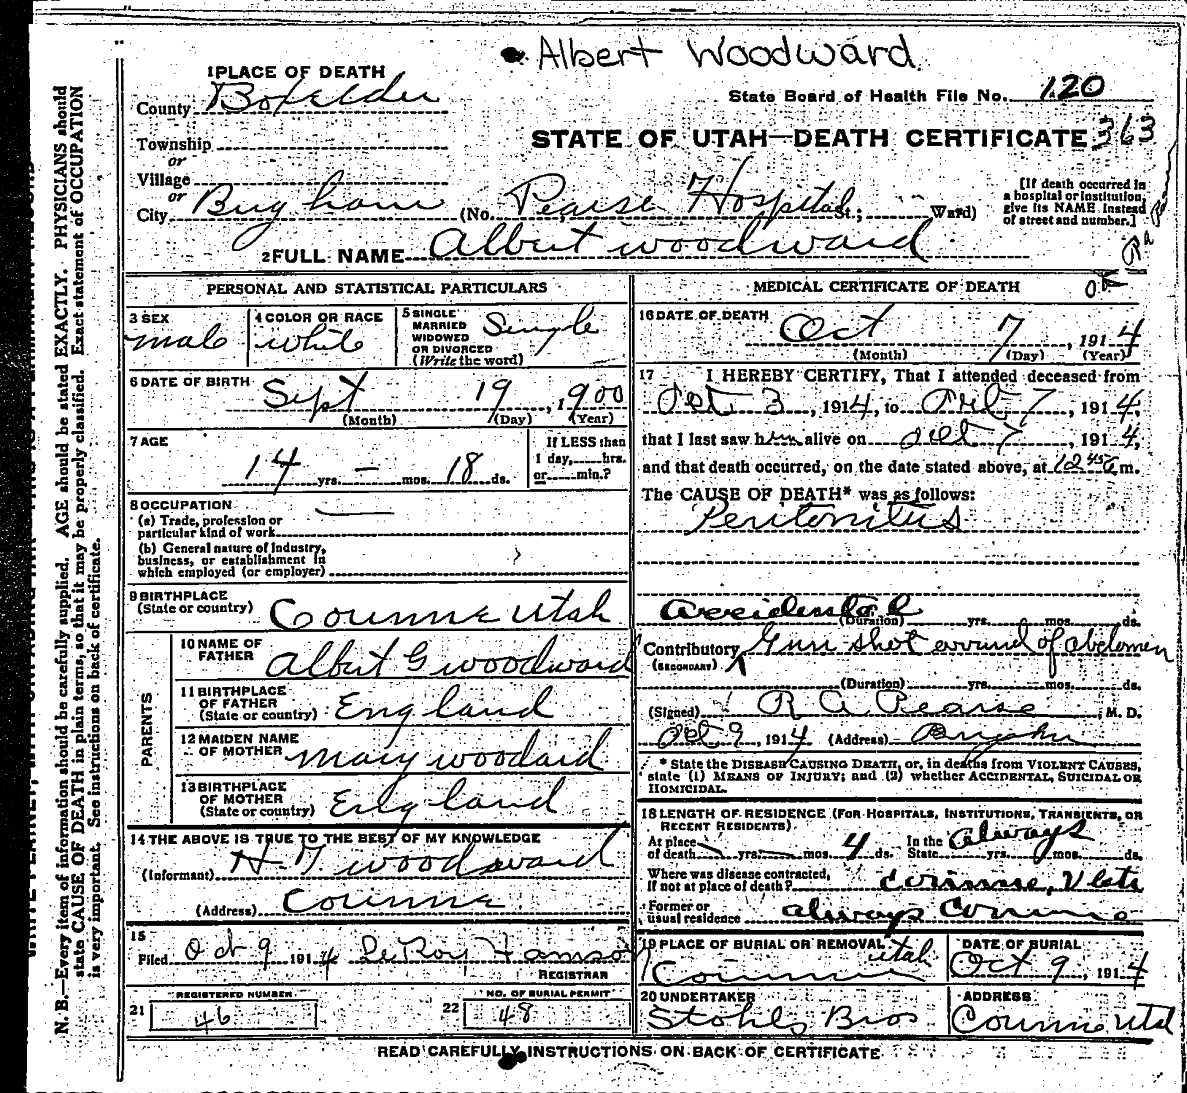 Albert Woodward
1 PLACE OF DEATH
County Boxelder
State Board of Health File No. 120
Township
or
Village
or
City Brigham
STATE OF UTAH—DEATH CERTIFICATE 363
(No. Pearse Hospital St.; Ward)
[If death occurred in
a hospital or institution,
give its NAME instead
of street and number.]
2 FULL NAME Albert Woodward
PERSONAL AND STATISTICAL PARTICULARS
3 SEX
male
4 COLOR OR RACE
white
5 SINGLE
MARRIED
WIDOWED
OR DIVORCED
(Write the word)
Single
6 DATE OF BIRTH
Sept 19, 1900
(Month) (Day) (Year)
7 AGE
14 yrs. — mos. 18 ds.
If LESS than
1 day, hrs.
or min.?
8 OCCUPATION
(a) Trade, profession or
particular kind of work
(b) General nature of industry,
business, or establishment in
which employed (or employer)
9 BIRTHPLACE
(State or country) Corinne Utah
PARENTS
10 NAME OF
FATHER Albert G Woodward
11 BIRTHPLACE
OF FATHER
(State or country) England
12 MAIDEN NAME
OF MOTHER Mary Woodard
13 BIRTHPLACE
OF MOTHER
(State or country) England
14 THE ABOVE IS TRUE TO THE BEST OF MY KNOWLEDGE
(Informant) H. T. Woodward
(Address) Corinne
15
Filed Oct 9 1914 LeRoy Hanson
REGISTRAR
21 REGISTERED NUMBER
46
22 NO. OF BURIAL PERMIT
48
MEDICAL CERTIFICATE OF DEATH
16 DATE OF DEATH
Oct 7, 1914
(Month) (Day) (Year)
17 I HEREBY CERTIFY, That I attended deceased from
Oct 3, 1914, to Oct 7, 1914,
that I last saw him alive on Oct 7, 1914,
and that death occurred, on the date stated above, at 12 45 a m.
The CAUSE OF DEATH* was as follows:
Peritonitus
Accidental
(Duration) yrs. mos. ds.
Contributory Gun shot wound of abdomen
(SECONDARY)
(Duration) yrs. mos. ds.
(Signed) R A Pearse, M. D.
Oct 9, 1914 (Address) Brigham
* State the DISEASE CAUSING DEATH, or, in deaths from VIOLENT CAUSES,
state (1) MEANS OF INJURY; and (2) whether ACCIDENTAL, SUICIDAL OR
HOMICIDAL.
18 LENGTH OF RESIDENCE (FOR HOSPITALS, INSTITUTIONS, TRANSIENTS, OR
RECENT RESIDENTS).
At place
of death yrs. mos. 4 ds.
In the
State Always yrs. mos. ds.
Where was disease contracted,
If not at place of death? Corinne, Utah
Former or
usual residence always Corinne
19 PLACE OF BURIAL OR REMOVAL
Corinne Utah
DATE OF BURIAL
Oct 9, 1914
20 UNDERTAKER
Stohls Bros
ADDRESS
Corinne Utah
READ CAREFULLY INSTRUCTIONS ON BACK OF CERTIFICATE
N. B.—Every item of information should be carefully supplied. AGE should be stated EXACTLY. PHYSICIANS should
state CAUSE OF DEATH in plain terms, so that it may be properly classified. Exact statement of OCCUPATION
is very important. See instructions on back of certificate.